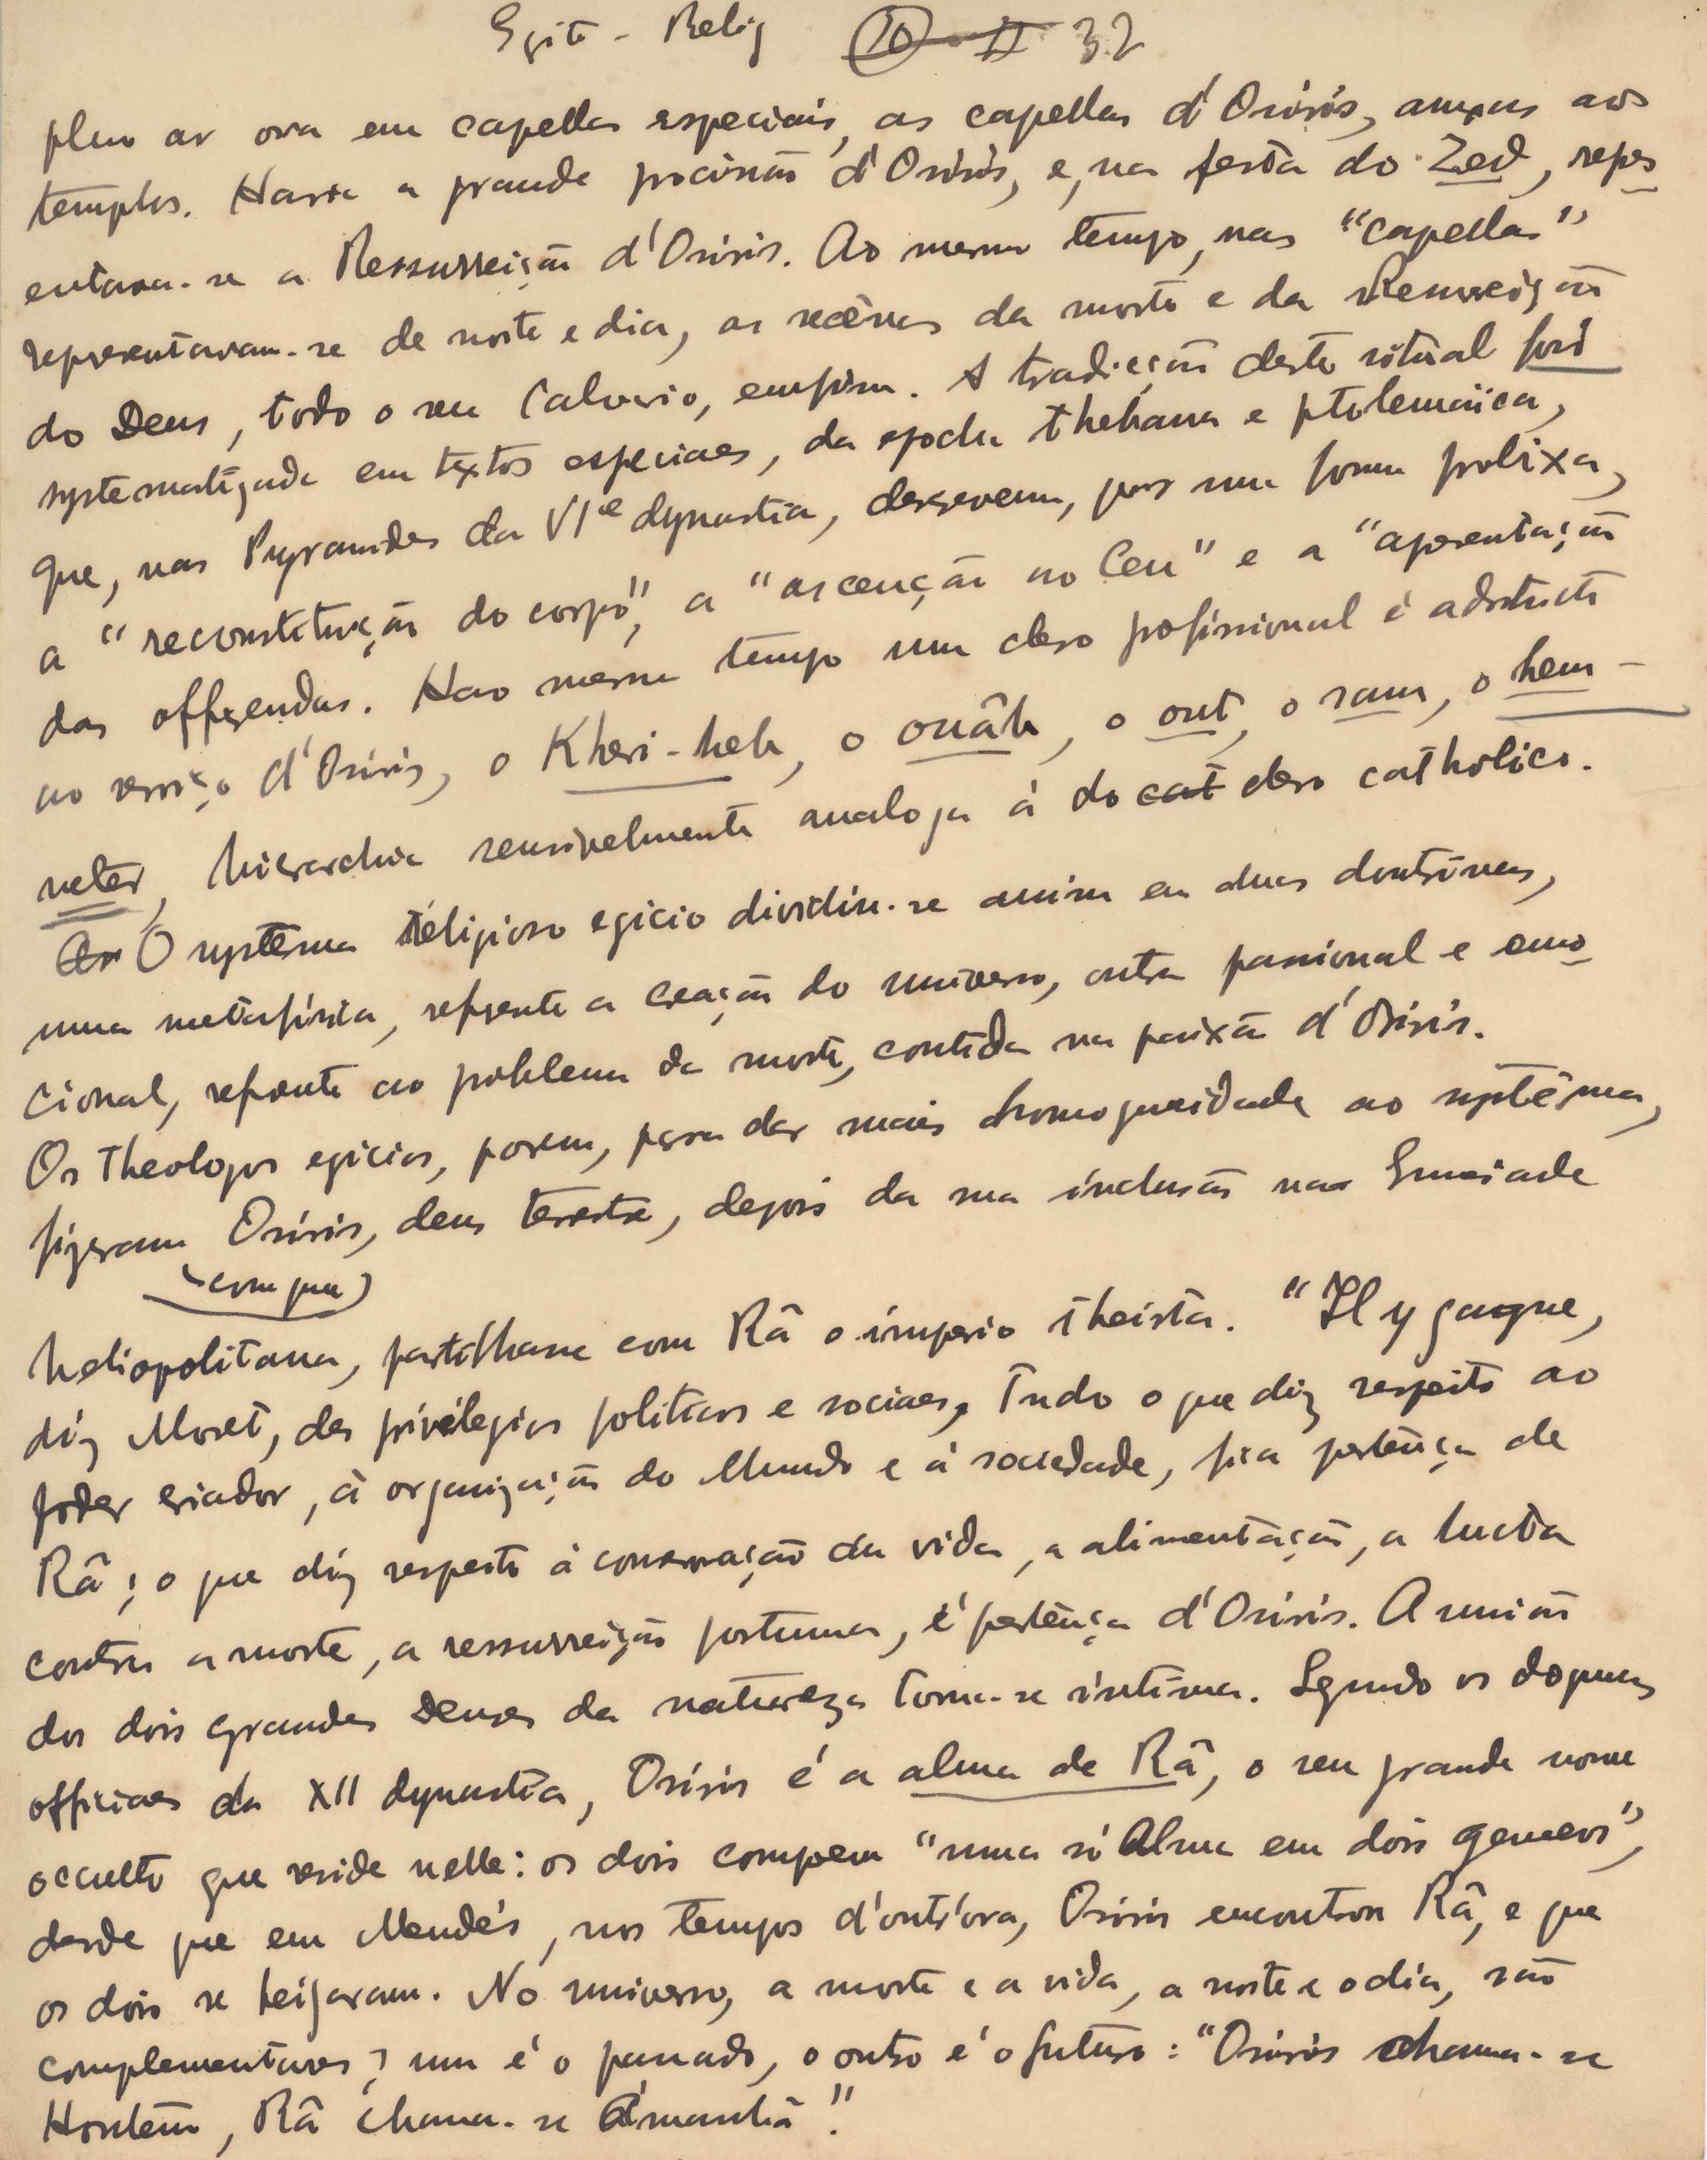 Egito - Relig 10 - II 32
pleno ar ora em capellas especiais, as capellas d'Osiris, anexas aos
templos. Havia a grande procissão d'Osiris, e, na festa do Zed, repres
entava-se a Ressurreição d'Osiris. Ao mesmo tempo, nas "capellas"
representavam-se de noite e dia, as scênas da morte e da Resurreição
do Deus, todo o seu Calvario, emfim. A tradicção deste ritual foi
systematizada em textos especiaes, da epocha thebana e ptolemaica,
que, nas Pyramides da VIe dynastia, descrevem, por uma forma prolixa,
a "reconstituição do corpo", a "ascenção ao Ceu" e a "apresentação
das offrendas. Hao mesmo tempo um clero profissional é adstricto
ao serviço d'Osiris, o Kheri-heb, o ouâb, o out, o sam, o hem-
neter, hierarchia sensivelmente analoga á do cat clero catholico.
O systêma religioso egicio dividiu-se assim em duas doutrinas,
uma metafisica, refrente a creação do universo, outra passional e emo
cional, refrente ao problema da morte, contida na paixão d'Osiris.
Os Theologos egicios, porem, para dar mais homogeneidade ao systêma,
fizeram Osiris, deus terestre, depois da sua inclusão na Enneiade
com que
heliopolitana, partilhasse com Râ o imperio theista. "Il y gagne,
diz Moret, des privilegios politicos e sociaes. Tudo o que diz respeito ao
poder criador, á organização do Mundo e á sociedade, fica pertênça de
Râ; o que diz respeito á conservação da vida, a alimentação, a lucta
contra a morte, a ressurreição postuma, é pertênça d'Osiris. A união
dos dois grandes Deuses da natureza torna-se intima. Segundo os dogmas
officiaes da XII dynastia, Osiris é a alma de Râ, o seu grande nome
occulto que reside nelle: os dois compoem "uma só Alma em dois gemeos",
desde que em Mendés, nos tempos d'outr'ora, Osiris encontrou Râ, e que
os dois se beijaram. No universo, a morte e a vida, a noite e o dia, são
complementares; um é o passado, o outro é o futuro: "Osiris chama-se
Hontêm, Râ chama-se Ámanhã".